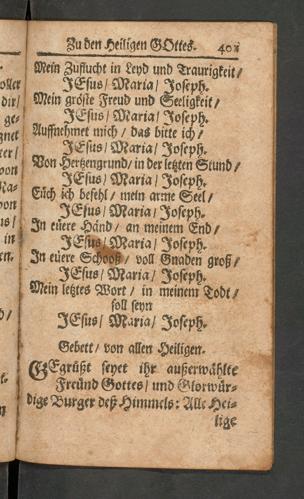 Zu den Heiligen GOttes. 401
Mein Zuflucht in Leyd und Traurigkeit /
JEsus / Maria / Joseph.
Mein gröste Freud und Seeligkeit /
JEsus / Maria / Joseph.
Auffnehmet mich / das bitte ich /
JEsus / Maria / Joseph.
Von Hertzengrund / in der letzten Stund /
JEsus / Maria / Joseph.
Eüch ich befehl / mein arme Seel /
JEsus / Maria / Joseph.
In eüere Händ / an meinem End /
JEsus / Maria / Joseph.
In eüere Schooß / voll Gnaden groß /
JEsus / Maria / Joseph.
Mein letztes Wort / in meinem Todt /
soll seyn
JEsus / Maria / Joseph.
Gebett / von allen Heiligen.
GEgrüßt seyet ihr außerwählte
Freünd Gottes / und Glorwür-
dige Burger deß Himmels: Alle Hei-
lige